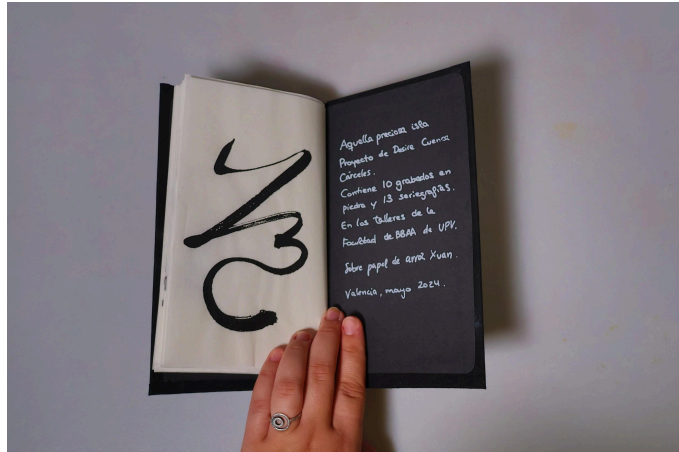 Aquella preciosa isla
Proyecto de Desire Cuenca
Cárceles.
Contiene 10 grabados en
piedra y 13 seriegrafías.
En los talleres de la
Facultad de BBAA de UPV.
Sobre papel de arroz Xuan.
Valencia, mayo 2024.